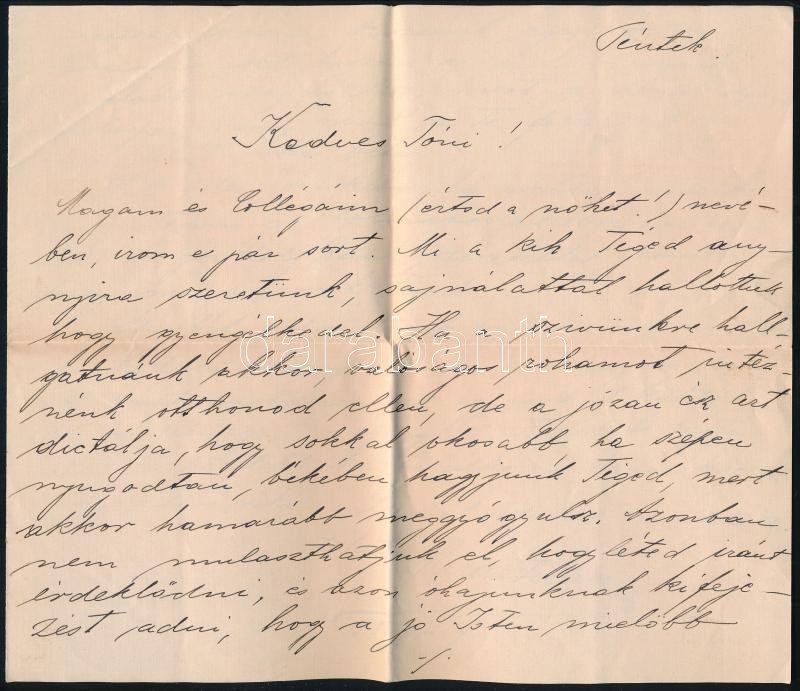 Péntek.
Kedves Tóni!
Magam és Collégáim (értsd a nőket!) nevé-
ben, irom e pár sort. Mi a kik Téged any-
nyira szeretünk, sajnálattal hallottuk
hogy gyengélkedel. Ha a szivünkre hall-
gatnánk akkor, valóságos rohamot intéz-
nénk otthonod ellen, de a józan ész azt
dictálja, hogy sokkal okosabb ha szépen
nyugodtan, békében hagyjunk Téged, mert
akkor hamarább meggyógyulsz. Azonban
nem mulaszthatjuk el, hogyléted iránt
érdeklődni, és azon óhajunknak kifeje-
zést adni, hogy a jó Isten mielőbb
-/.
darabanth